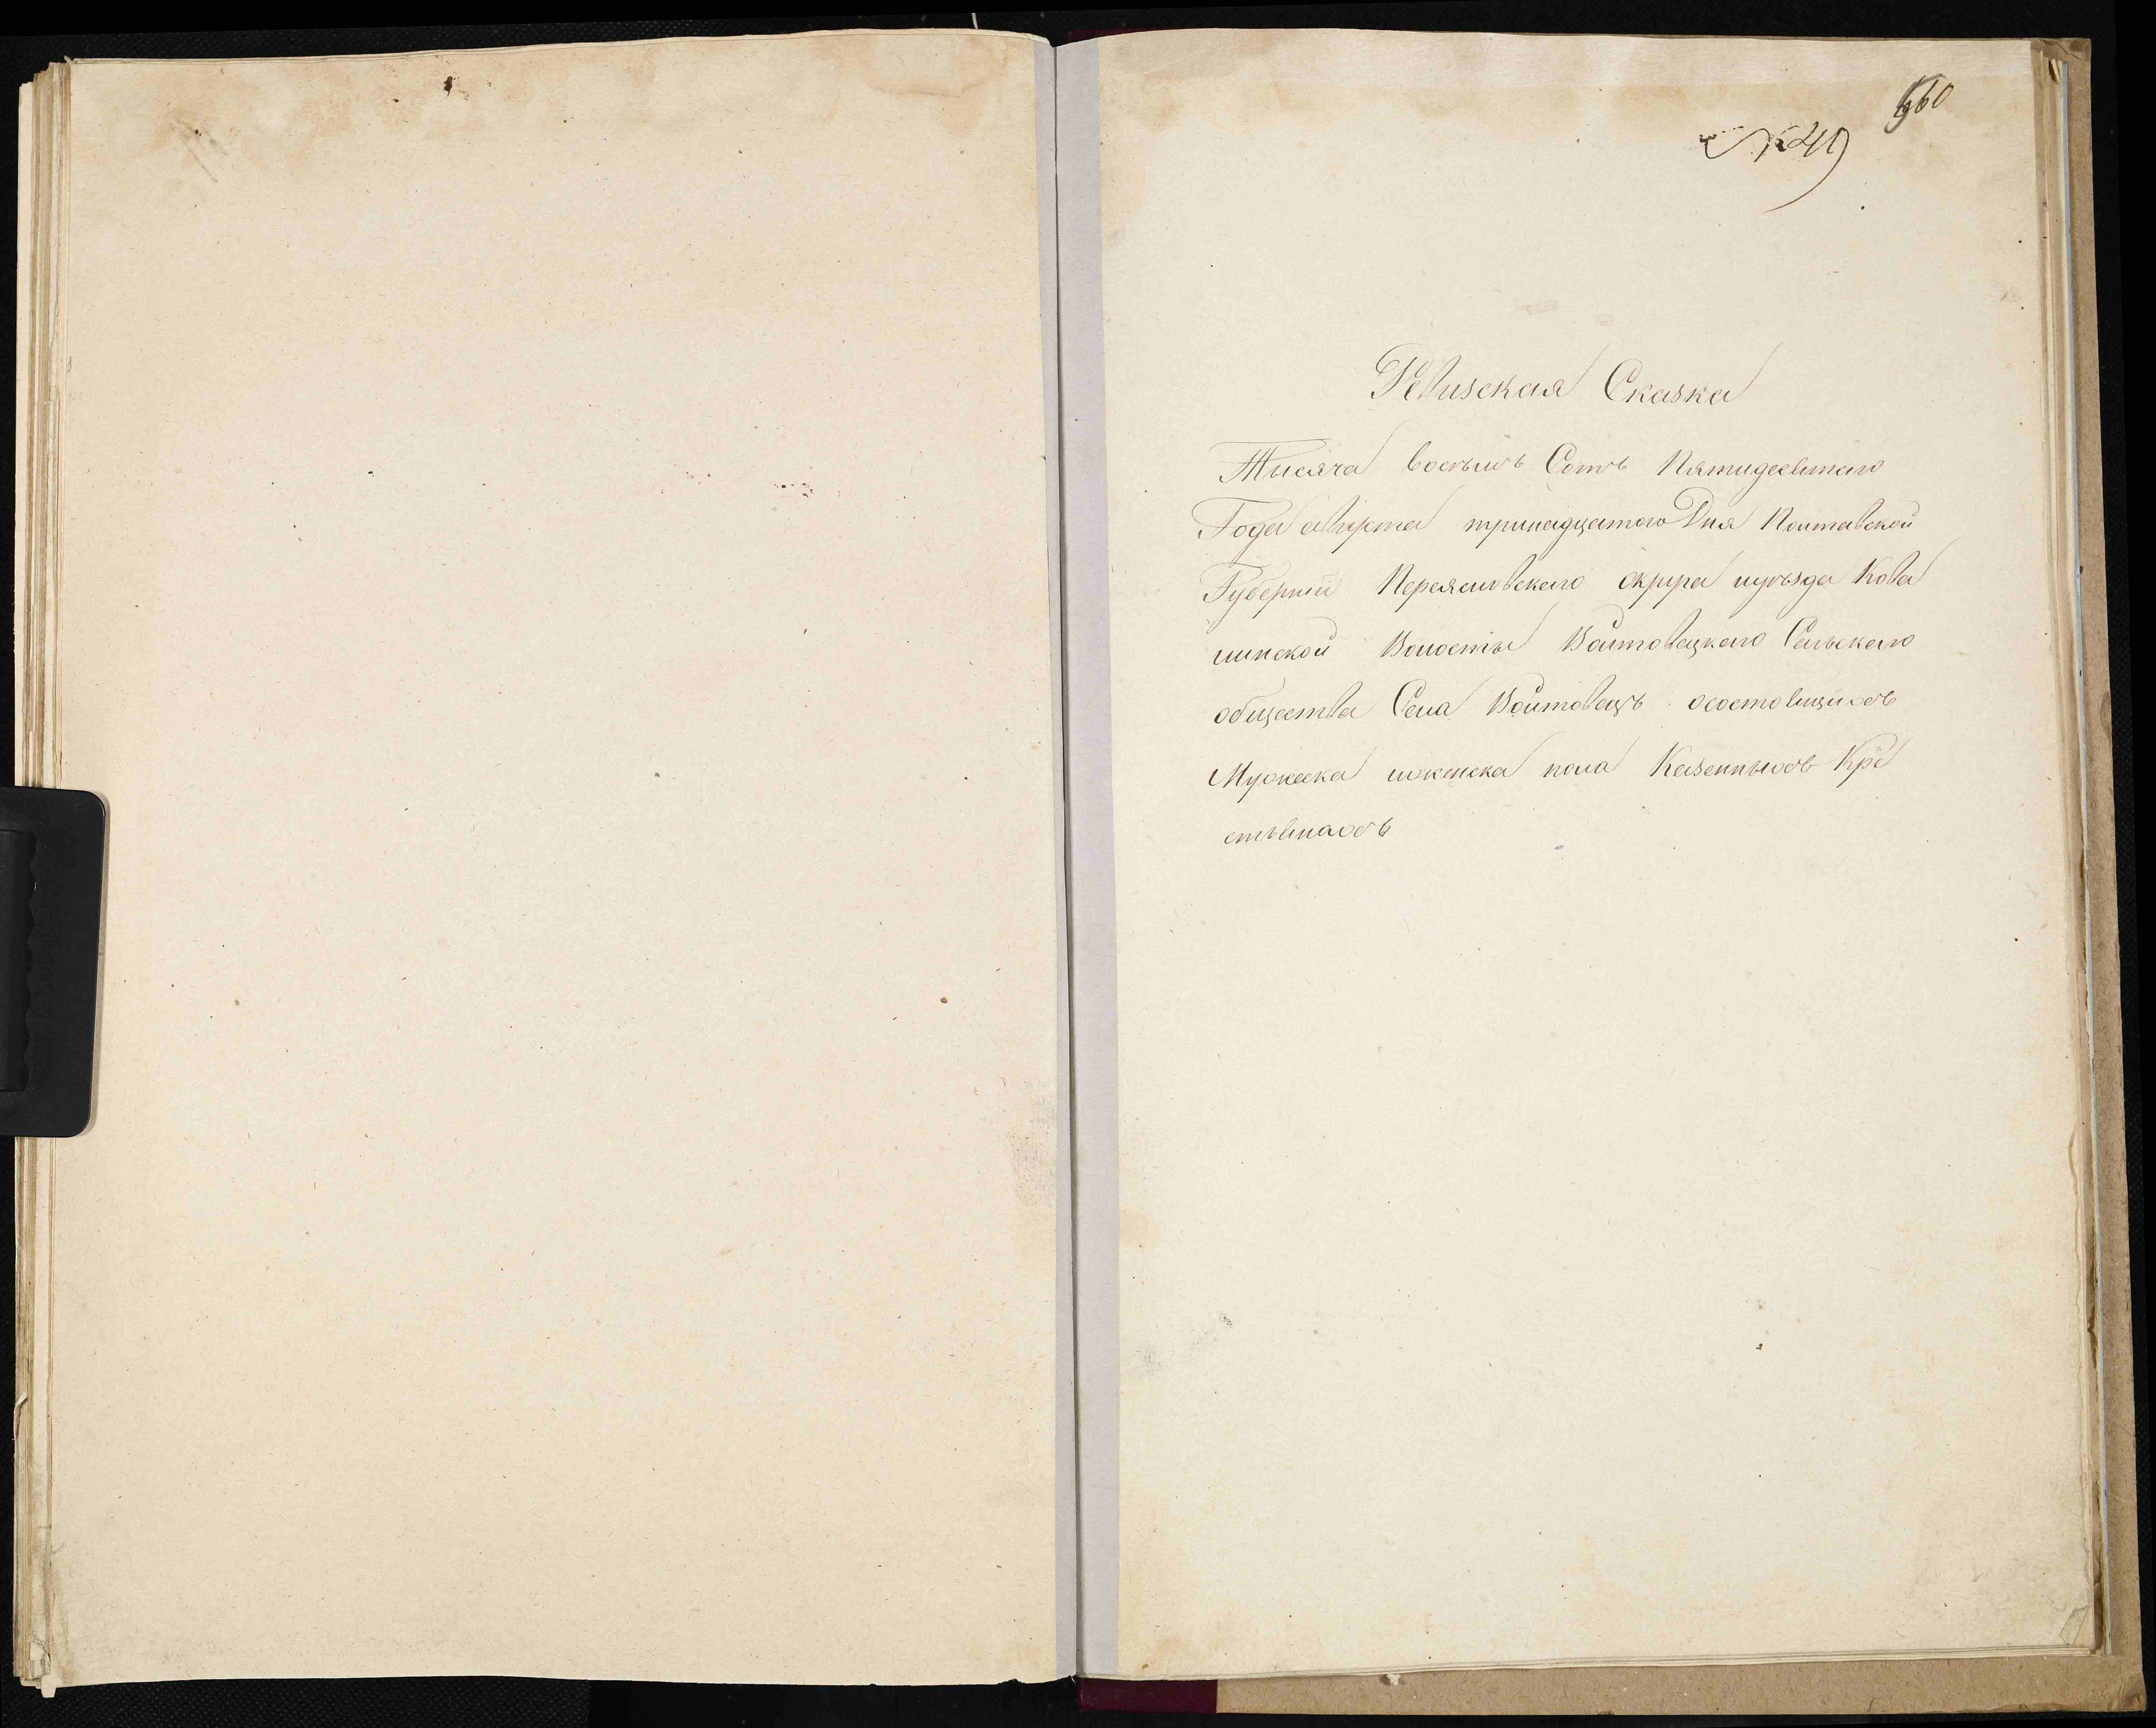 560
№ 49
Ревизская Сказка
Тисяча восѣмъ Сотъ Пятидесятого
Года августа тринадцатого Дня Полтавской
Губернїи Переяславского округа иуѣзда Кова
линской Волосты Войтовецкого Сельского
общества Села Войтовецъ осостовщихъ
Мужеска иженска пола Казенныхъ Кре
стьянахъ